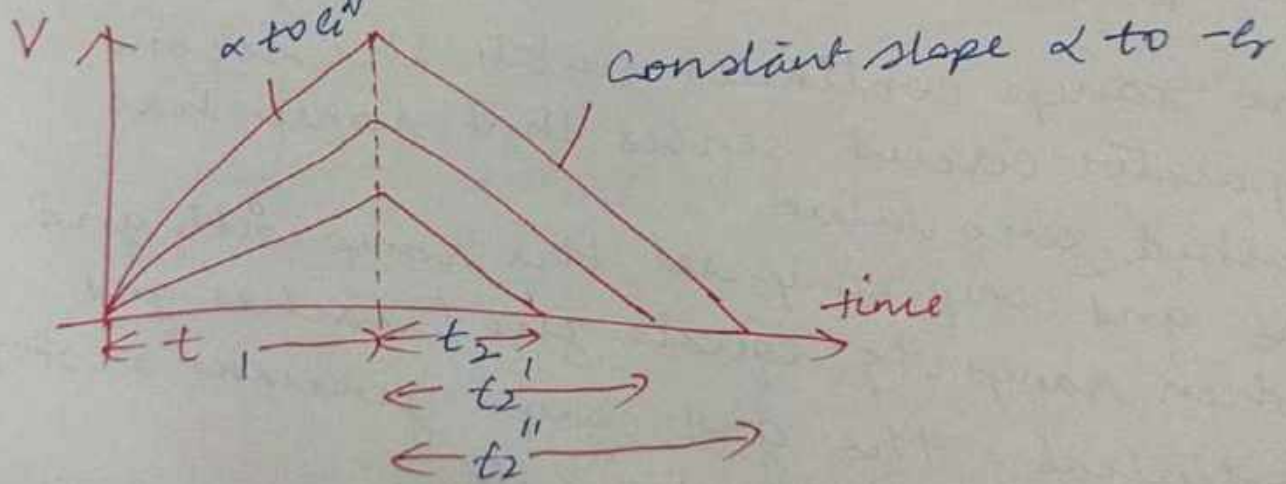 V
α to eᵢₙ
Constant slope α to -es
time
t1
t2
t2'
t2''